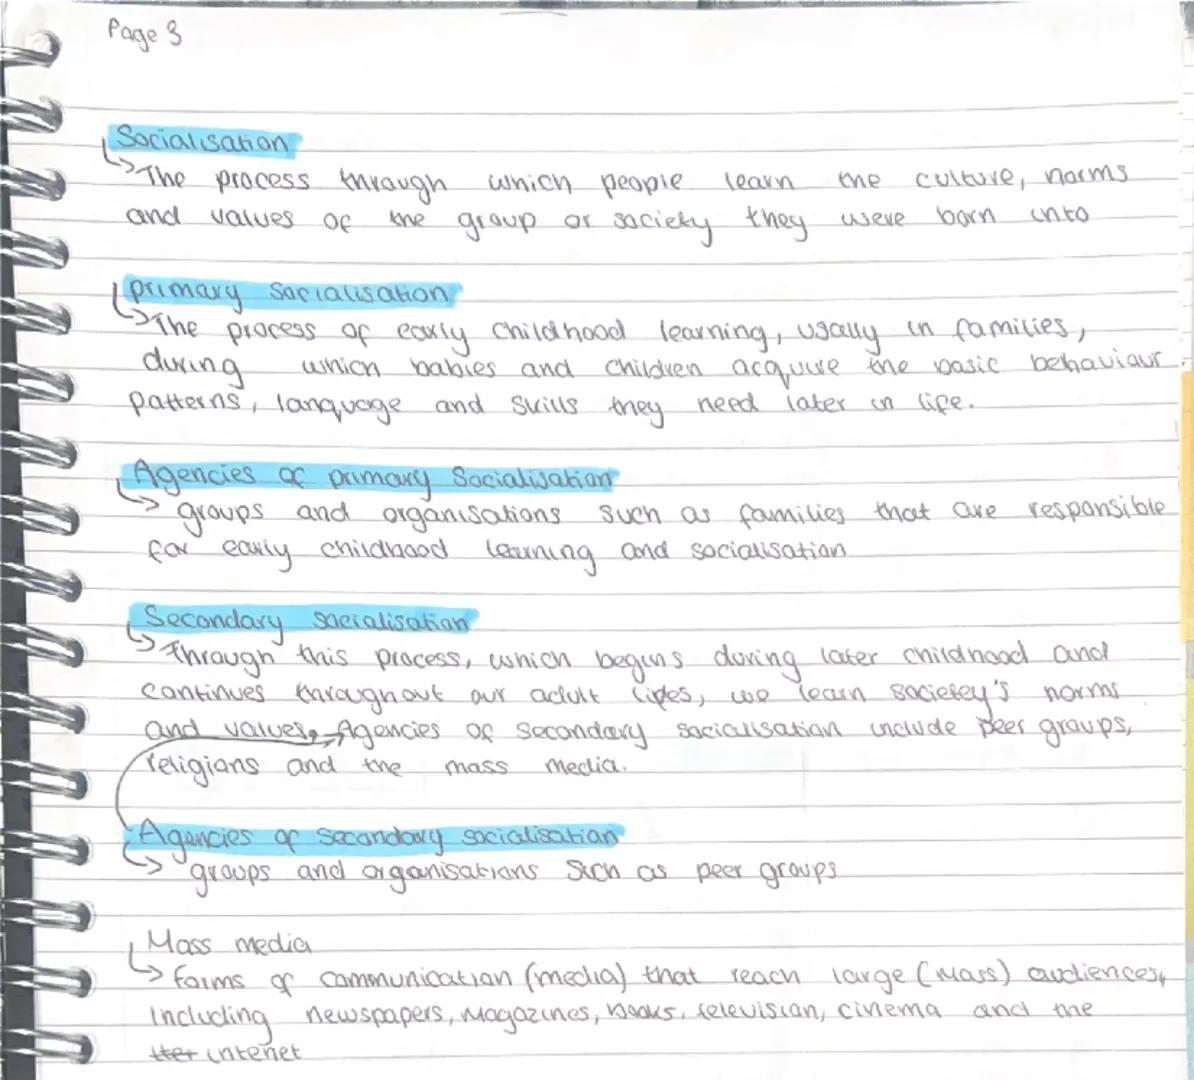 Page 3
Socialisation
↳ The process through which people learn the culture, norms
and values of the group or society they were born into
primary Socialisation
↳ The process of early childhood learning, usally in families,
during which babies and children acquire the basic behaviour
patterns, language and skills they need later in life.
Agencies of primary Socialisation
↳ groups and organisations such as families that are responsible
for early childhood learning and socialisation
Secondary socialisation
↳ Through this process, which begins during later childhood and
continues throughout our adult lifes, we learn socieley's norms
and values. Agencies of secondary socialisation include peer groups,
religions and the mass media.
Agencies of secondary socialisation
↳ groups and organisations such as peer groups
Mass media
↳ forms of communication (media) that reach large (mass) audiences,
including newspapers, Magazines, books, television, cinema and the
tter intenet